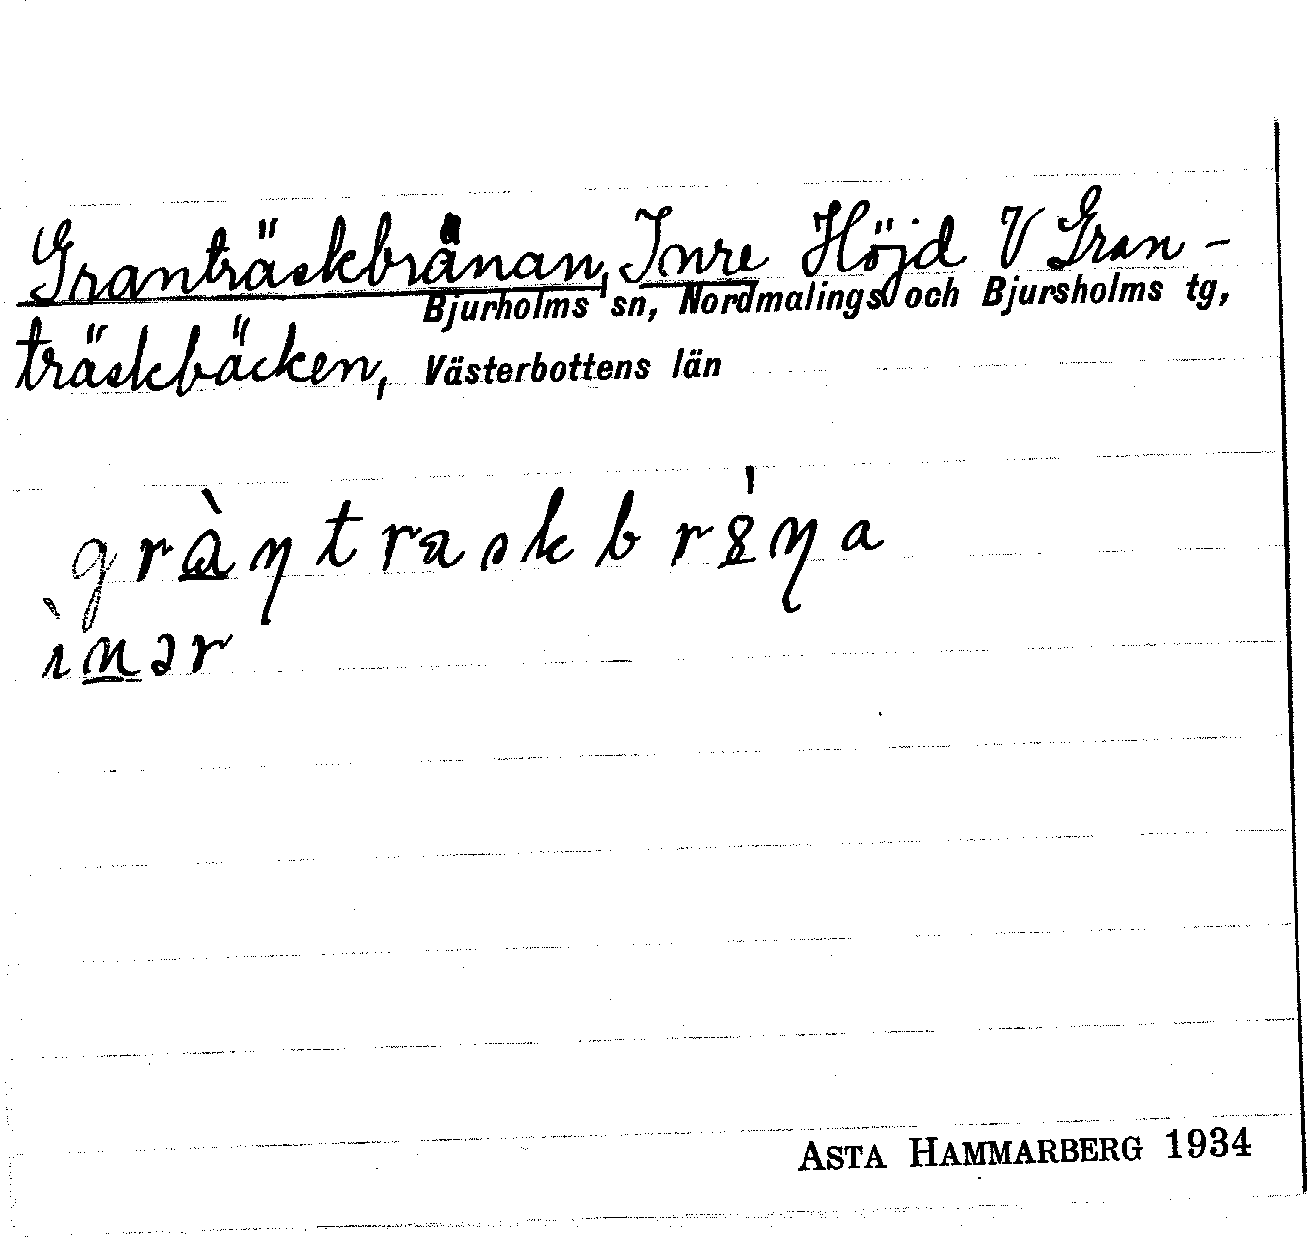 Granträskbrånan, Inre Höjd V Gran-
Bjurholms sn, Nordmalings och Bjursholms tg,
träskbäcken, Västerbottens län
gràn̡traskbrn̡a
ìn̲ər
ASTA HAMMARBERG 1934